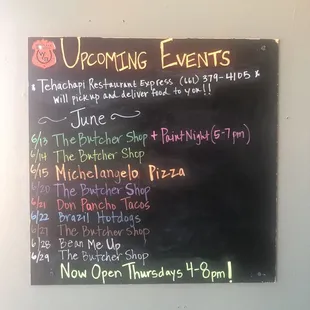 UPCOMING EVENTS
* Tehachapi Restaurant Express (661) 379-4105 *
will pick up and deliver food to you!!
~ June ~
6/13 The Butcher Shop + Paint Night (5-7pm)
6/14 The Butcher Shop
6/15 Michelangelo Pizza
6/20 The Butcher Shop
6/21 Don Pancho Tacos
6/22 Brazil Hotdogs
6/27 The Butcher Shop
6/28 Bean Me Up
6/29 The Butcher Shop
Now Open Thursdays 4-8pm!